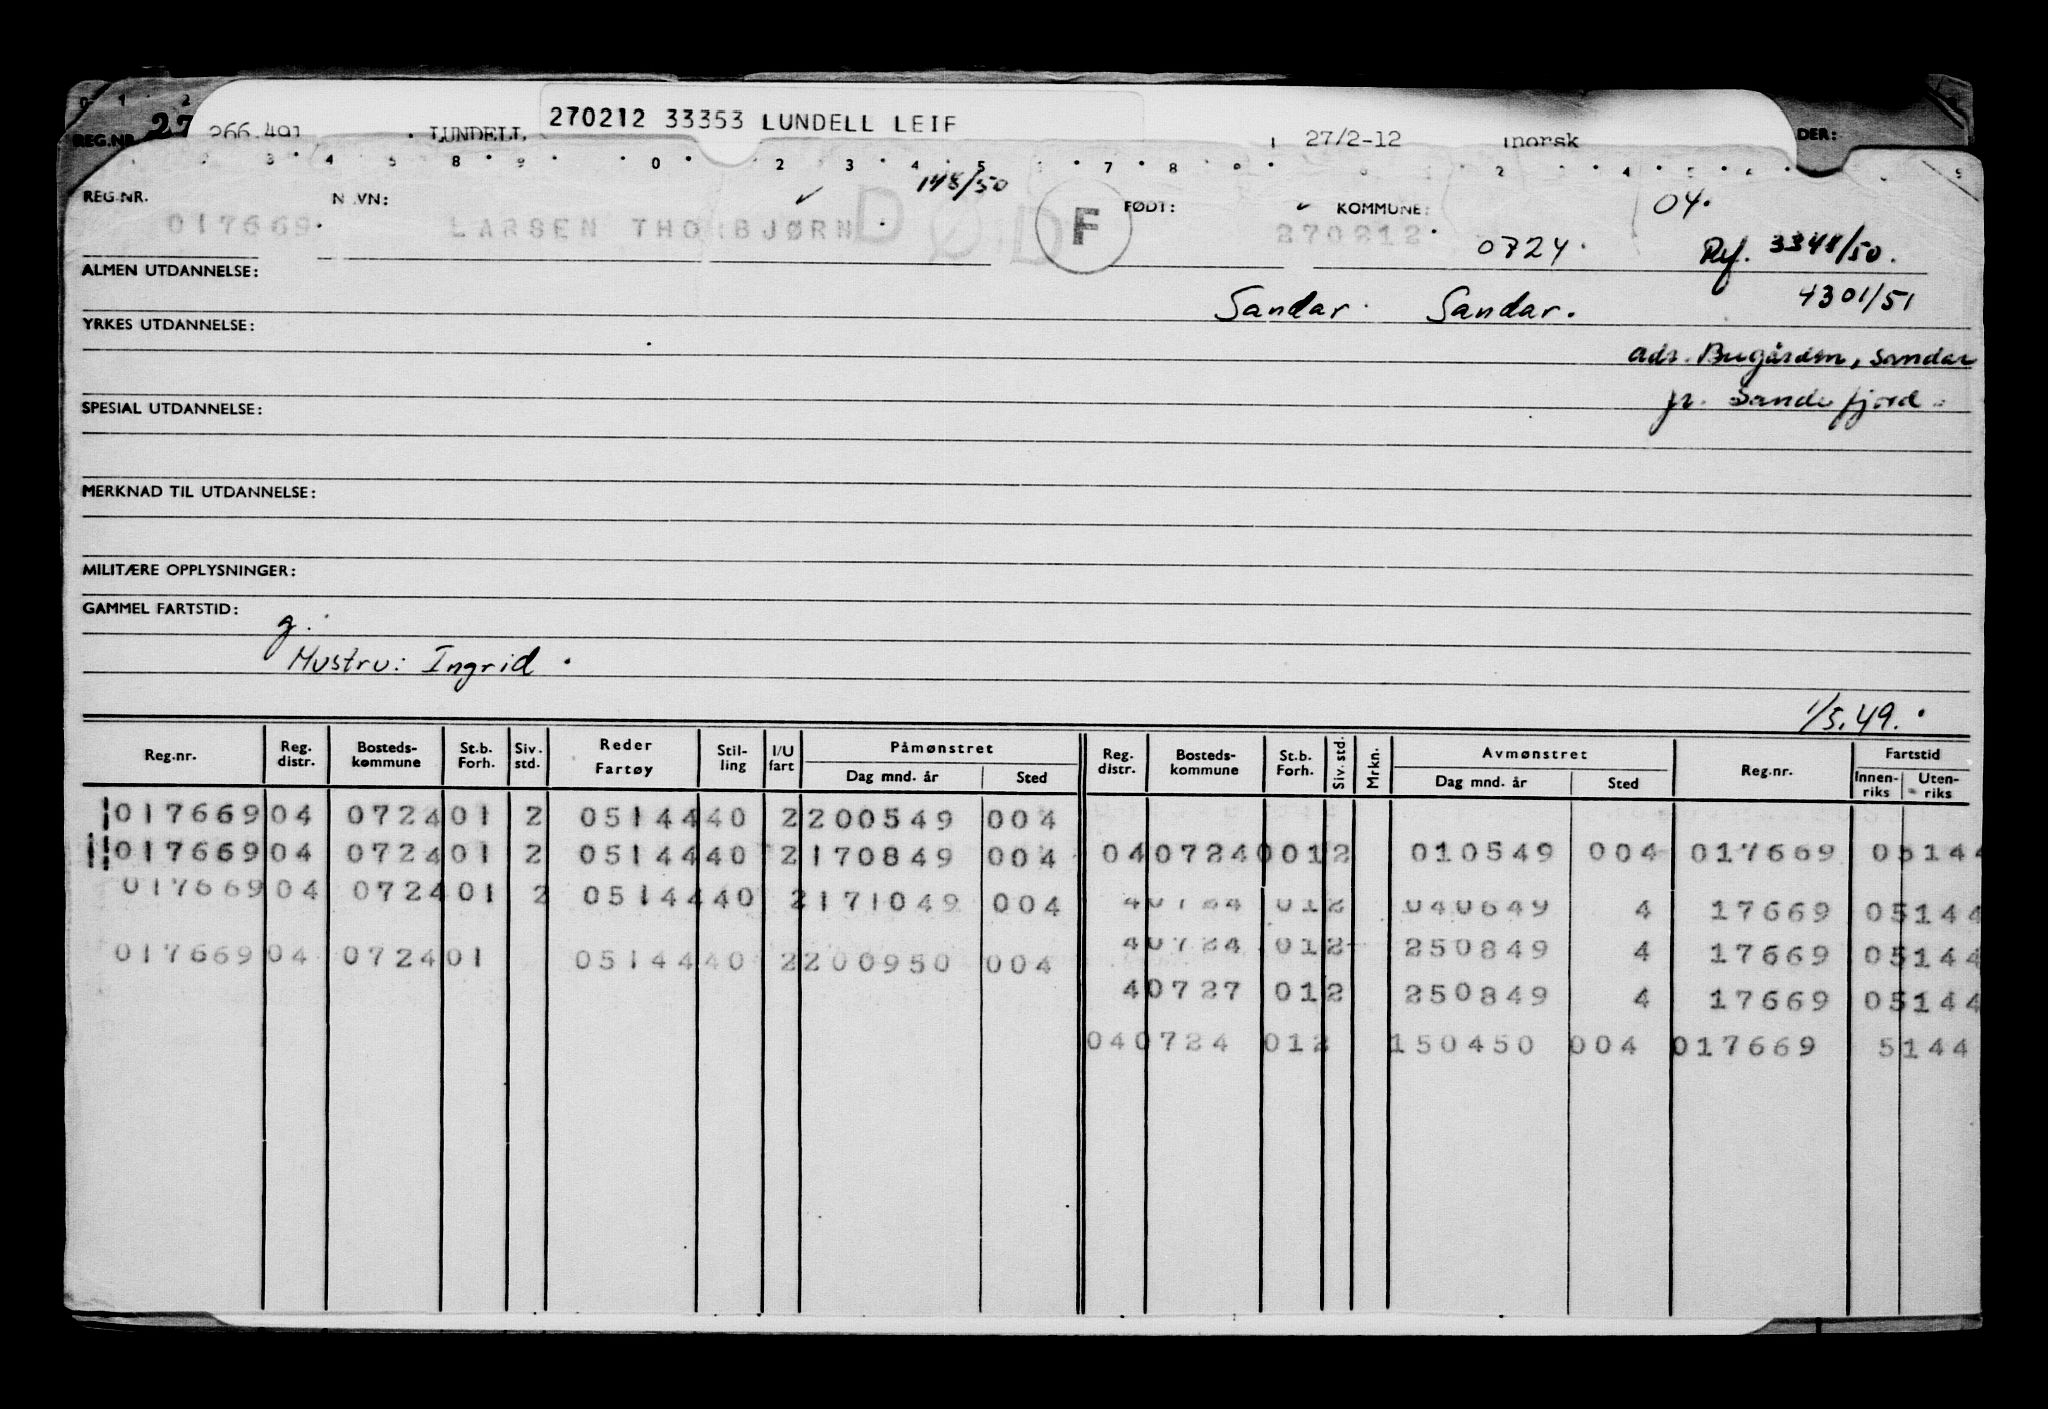 270212 33353 LUNDELL LEIF
REG.NR. 27 266.491 LUNDELL 27/2-12 norsk DER:
148/50
REG.NR. NAVN: FØDT: KOMMUNE: 04.
017669 LARSEN THORBJØRN DØD F 270212 0724. Ref. 3348/50.
ALMEN UTDANNELSE:
Sandar. Sandar. 4301/51
YRKES UTDANNELSE:
adr. Bugården, Sandar
pr. Sandefjord.
SPESIAL UTDANNELSE:
MERKNAD TIL UTDANNELSE:
MILITÆRE OPPLYSNINGER:
GAMMEL FARTSTID:
g.
Hustru: Ingrid.
1/5.49.
Reg.nr. Reg. distr. Bosteds-kommune St.b. Forh. Siv. std. Reder Fartøy Stil-ling I/U fart Påmønstret Dag mnd. år Sted Reg. distr. Bosteds-kommune St.b. Forh. Siv. std. Mrkn. Avmønstret Dag mnd. år Sted Reg.nr. Fartstid Innen-riks Uten-riks
017669 04 0724 01 2 05144 40 2 200549 004
017669 04 0724 01 2 05144 40 2 170849 004 04 0724 0012 010549 004 017669 05144
017669 04 0724 01 2 05144 40 2 171049 004 4 0724 012 040649 4 17669 05144
4 0724 012 250849 4 17669 05144
017669 04 0724 01 05144 40 2 200950 004
4 0727 012 250849 4 17669 05144
04 0724 012 150450 004 017669 5144